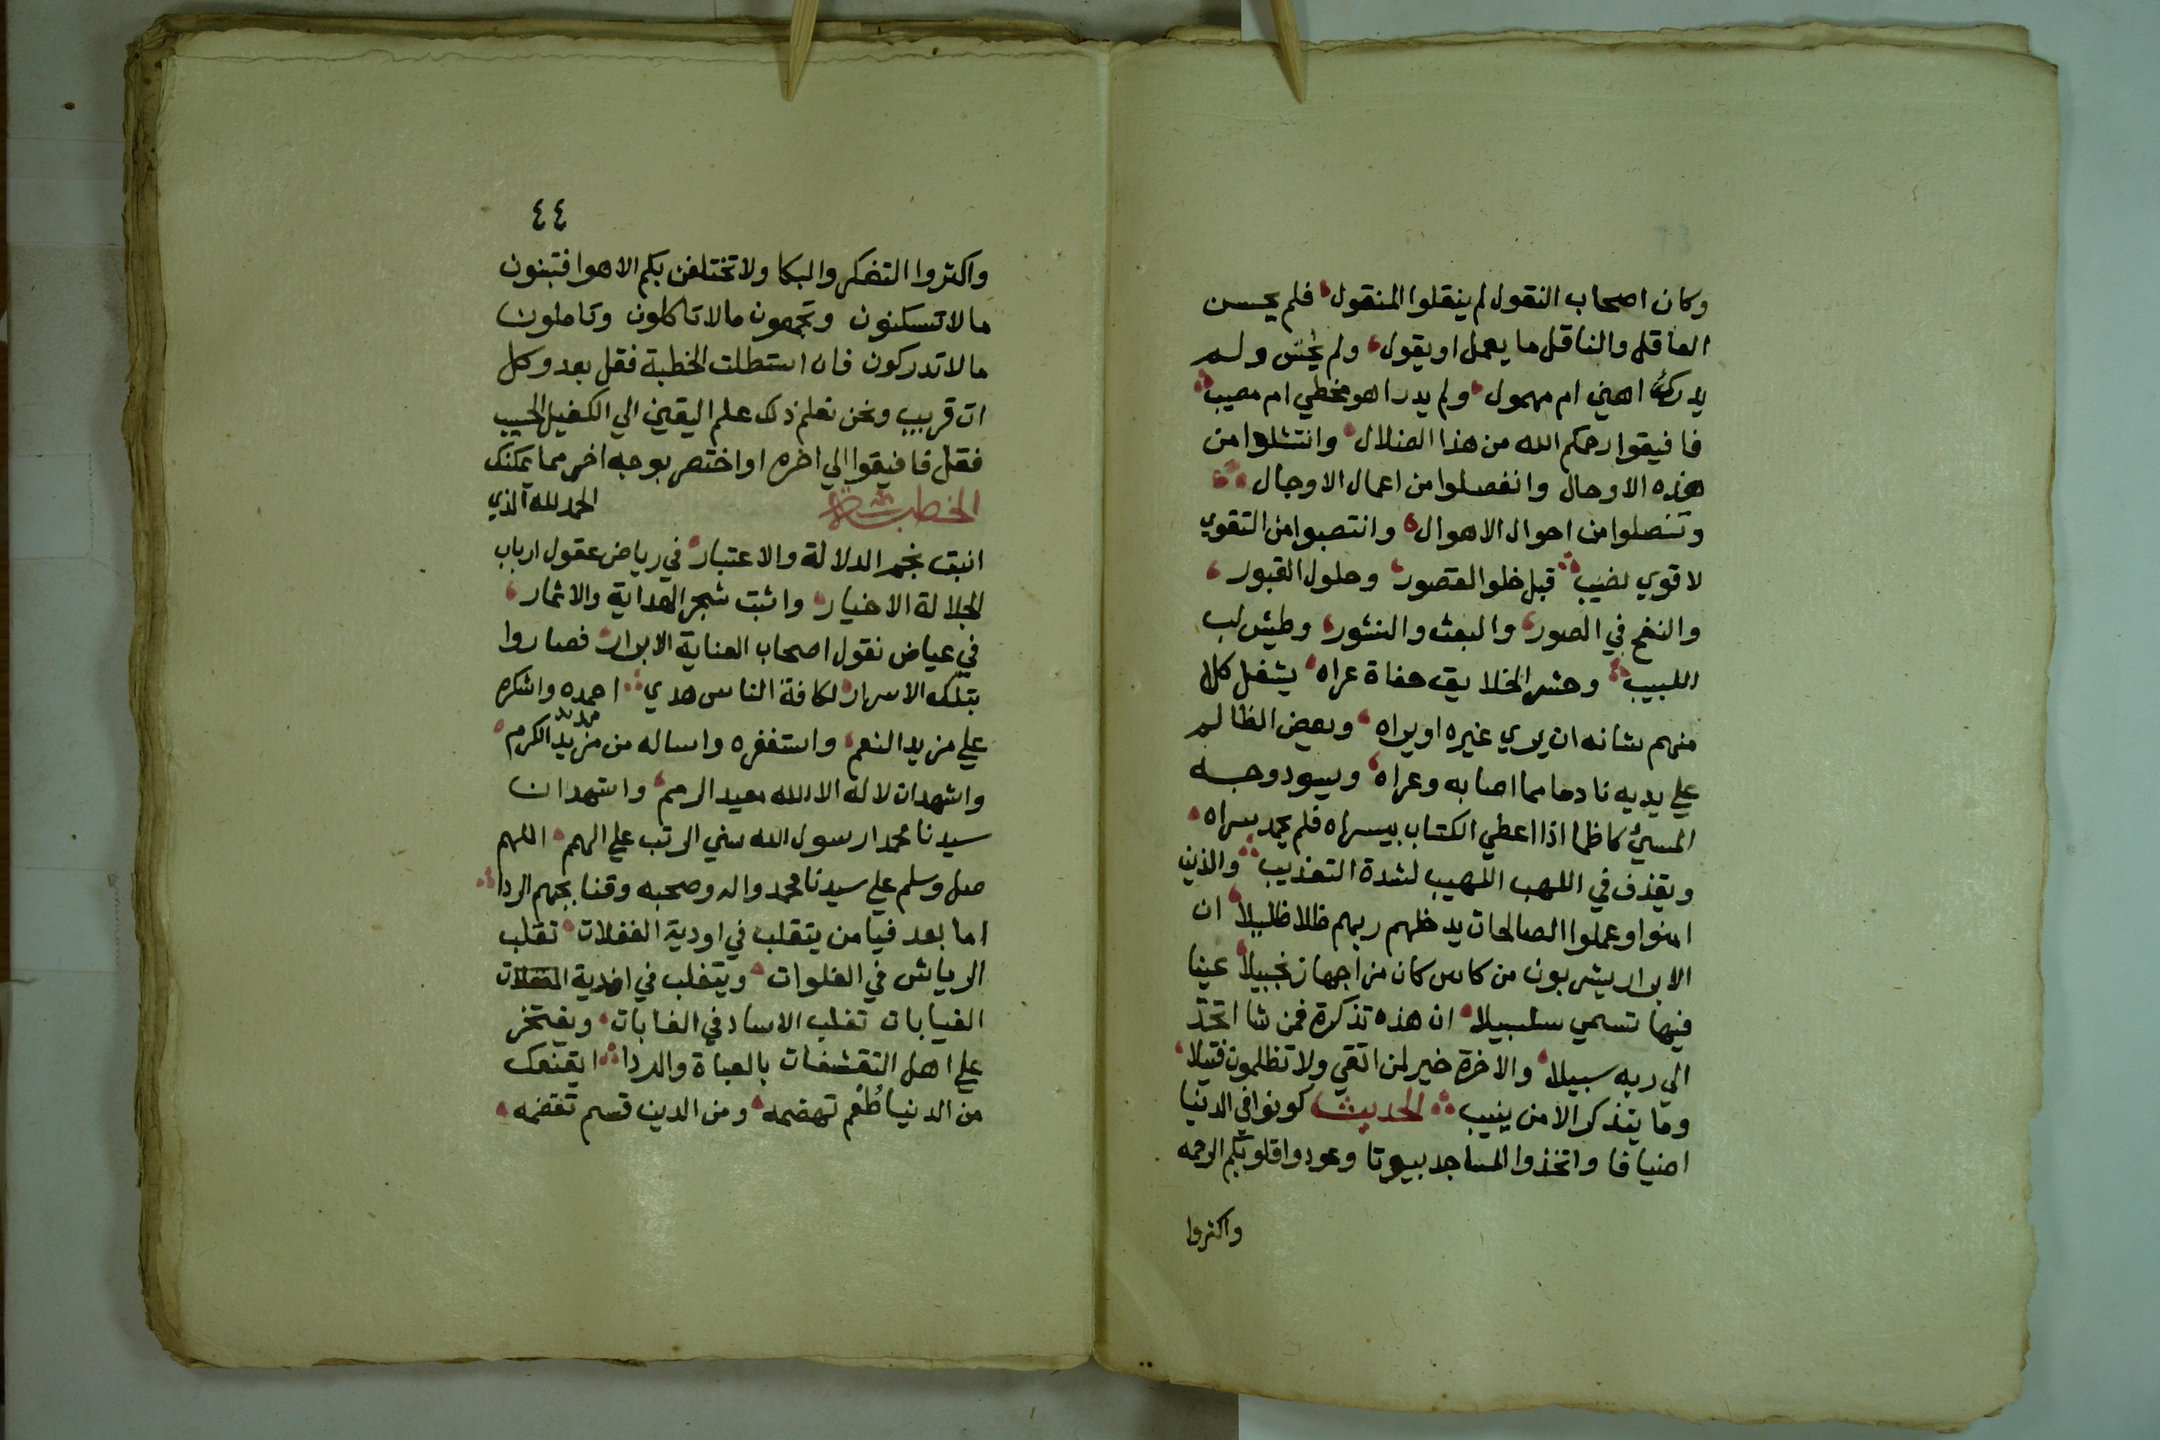 وكان اصحاب النقول لم ينقلوا المنقول فلم يحسن
العاقل والناقل ما يعمل او يقول ولم يخش ولم
يدركه اهني ام مهمول ولم يدر اهو مخطي ام مصيب
فافيقوا رحمكم الله من هذا الضلال وانتشلوا من
هذه الاوحال وانفصلوا من اعمال الاوجال
وتنصلوا من احوال الاهوال وانتصبوا من التقوي
لاقوي نصيب قبل خلو القصور وحلول القبور
والنفخ في الصور والبعث والنشور وطيش لب
اللبيب وحشر الخلايق حفاة عراه يشغل كلا
منهم شانه ان يري غيره او يراه وبعض الظالم
علي يديه نادما مما اصابه وعراه ويسود وجه
المسيئ كاظما اذا اعطي الكتاب بيسراه فلم يحمد سراه
ويقذف في اللهب اللهيب لشدة التعذيب والذين
امنوا وعملوا الصالحات يدخلهم ربهم ظلا ظليلا ان
الابرار يشربون من كاس كان مزاجها زنجبيلا عينا
فيها تسمي سلسبيلا ان هذه تذكرة فمن شا اتخذ
الي ربه سبيلا والاخرة خير لمن اتقي ولا تظلمون فتيلا
وما يتذكر الا من ينيب الحديث كونوا في الدنيا
اضيافا واتخذوا المساجد بيوتا وعودوا قلوبكم الرحمه
واكثروا
٤٤
واكثروا التفكر والبكا ولا تختلفن بكم الاهوا فتبنون
ما لا تسكنون وتجمعون ما لا تاكلون وتاملون
ما لا تدركون فان استطلت الخطبة فقل بعد وكل
ات قريب ونحن نعلم ذلك علم اليقين الي الكفيل الحسيب
فقل فافيقوا الي اخره او اختصر بوجه اخر مما يمكنك
الخطبة الحمد لله الذي
انبت نجم الدلالة والاعتبار في رياض عقول ارباب
الجلالة الاخيار واثبت شجر الهداية والاثمار
في عياض نقول اصحاب العناية الابرار فصاروا
بتلك الاسرار لكافة الناس هدي احمده واشكره
علي مزيد النعم واستغفره واساله من مزيد الكرم
واشهد ان لا اله الا الله معيد الرمم واشهد ان
سيدنا محمدا رسول الله سني الرتب علي الهمم اللهم
صل وسلم علي سيدنا محمد واله وصحبه وقنا بجمهم الردا
اما بعد فيا من يتقلب في اودية الغفلات تقلب
الرياش في الفلوات ويتغلب في اندية
الغيابات تغلب الاساد في الغابات ويفتخر
علي اهل التقشفات بالعباة والردا ايقنعك
من الدنيا طُعْم تهضمه ومن الدين قسم تقضمه